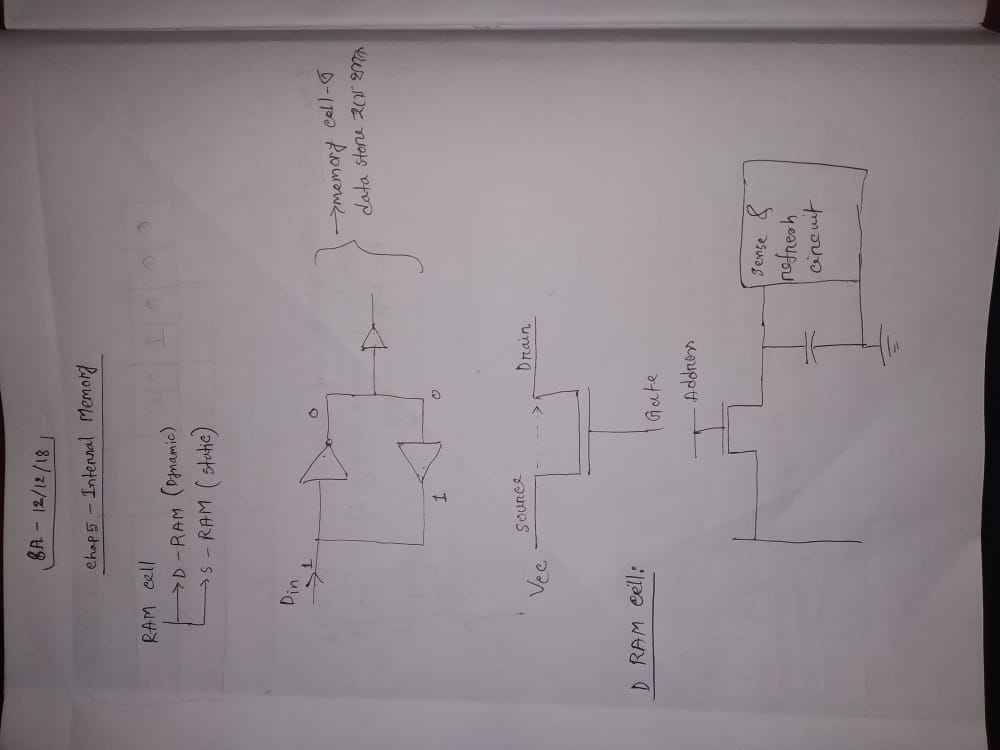 8A - 12/12/18
Chap 5 - Internal Memory
RAM cell
→ D - RAM (Dynamic)
→ S - RAM (static)
Din 1
0
1
0
→ memory cell-এ
data store হয়ে থাকে
Vcc source Drain
Gate
D RAM cell:
Address
sense &
refresh
circuit